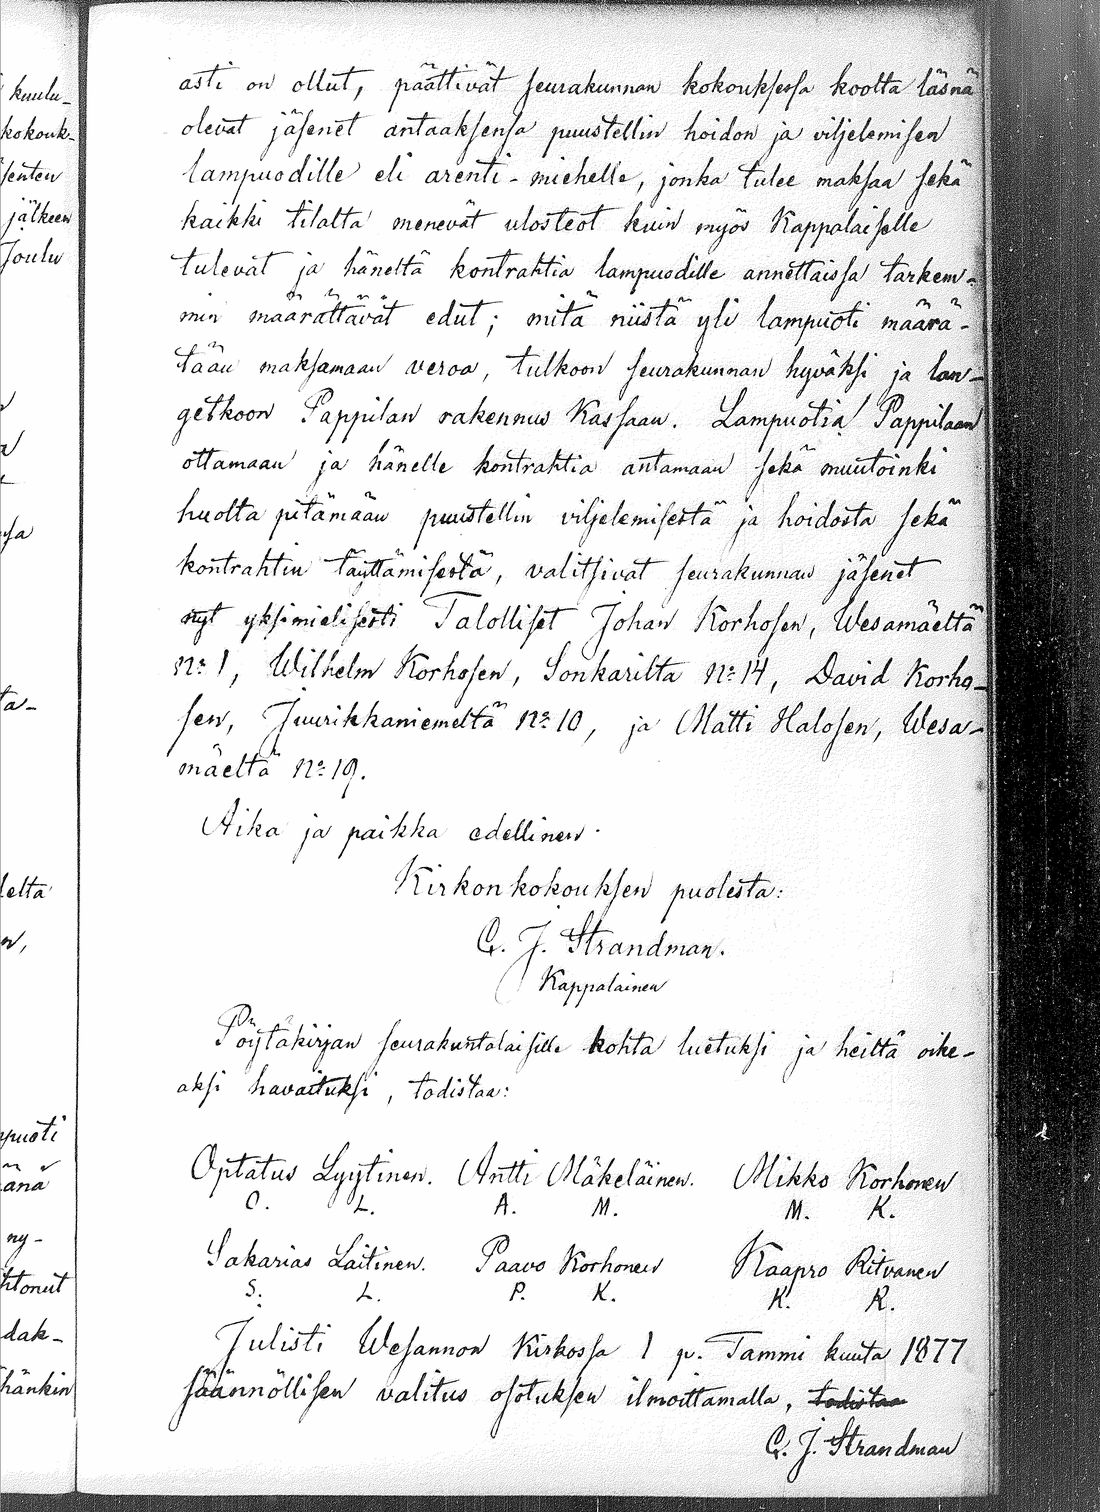 kuulu-
kokouk-
senten
jälkeen
Joulu
leltä
puoti
änä
ny-
htonut
dak-
hänkin
asti on ollut, päättivät seurakunnan kokouksessa koolta läsnä
olevat jäsenet antaaksensa puustellin hoidon ja viljelemisen
lampuodille eli arenti-miehelle, jonka tulee maksaa sekä
kaikki tilalta menevät ulosteot kuin myös Kappalaiselle
tulevat ja häneltä kontrahtia lampuodille annettaissa tarkem-
min määrättävät edut; mitä niistä yli lampuoti määrä-
tään maksamaan veroa, tulkoon seurakunnan hyväksi ja lan-
getkoon Pappilan rakennus Kassaan. Lampuotia Pappilaan
ottamaan ja hänelle kontrahtia antamaan sekä muutoinki
huolta pitämään puustellin viljelemisestä ja hoidosta sekä
kontrahtin täyttämisestä, valitsivat seurakunnan jäsenet
nyt yksimielisesti Talolliset Johan Korhosen, Wesamäeltä
No 1, Wilhelm Korhosen, Sonkarilta No 14, David Korho-
sen, Juurikkaniemeltä No 10, ja Matti Halosen, Wesa-
mäeltä No 19.
Aika ja paikka edellinen.
Kirkonkokouksen puolesta:
C. J. Strandman.
Kappalainen
Pöytäkirjan seurakuntalaisille kohta luetuksi ja heiltä oike-
aksi havaituksi, todistaa:
Optatus Lyytinen. Antti Mäkeläinen. Mikko Korhonen
O. L. A. M. M. K.
Sakarias Laitinen. Paavo Korhonen Kaapro Ritvanen
S. L. P. K. K. R.
Julisti Wesannon Kirkossa 1 p. Tammi kuuta 1877
säännöllisen valitus osotuksen ilmoittamalla, todistaa
C. J. Strandman